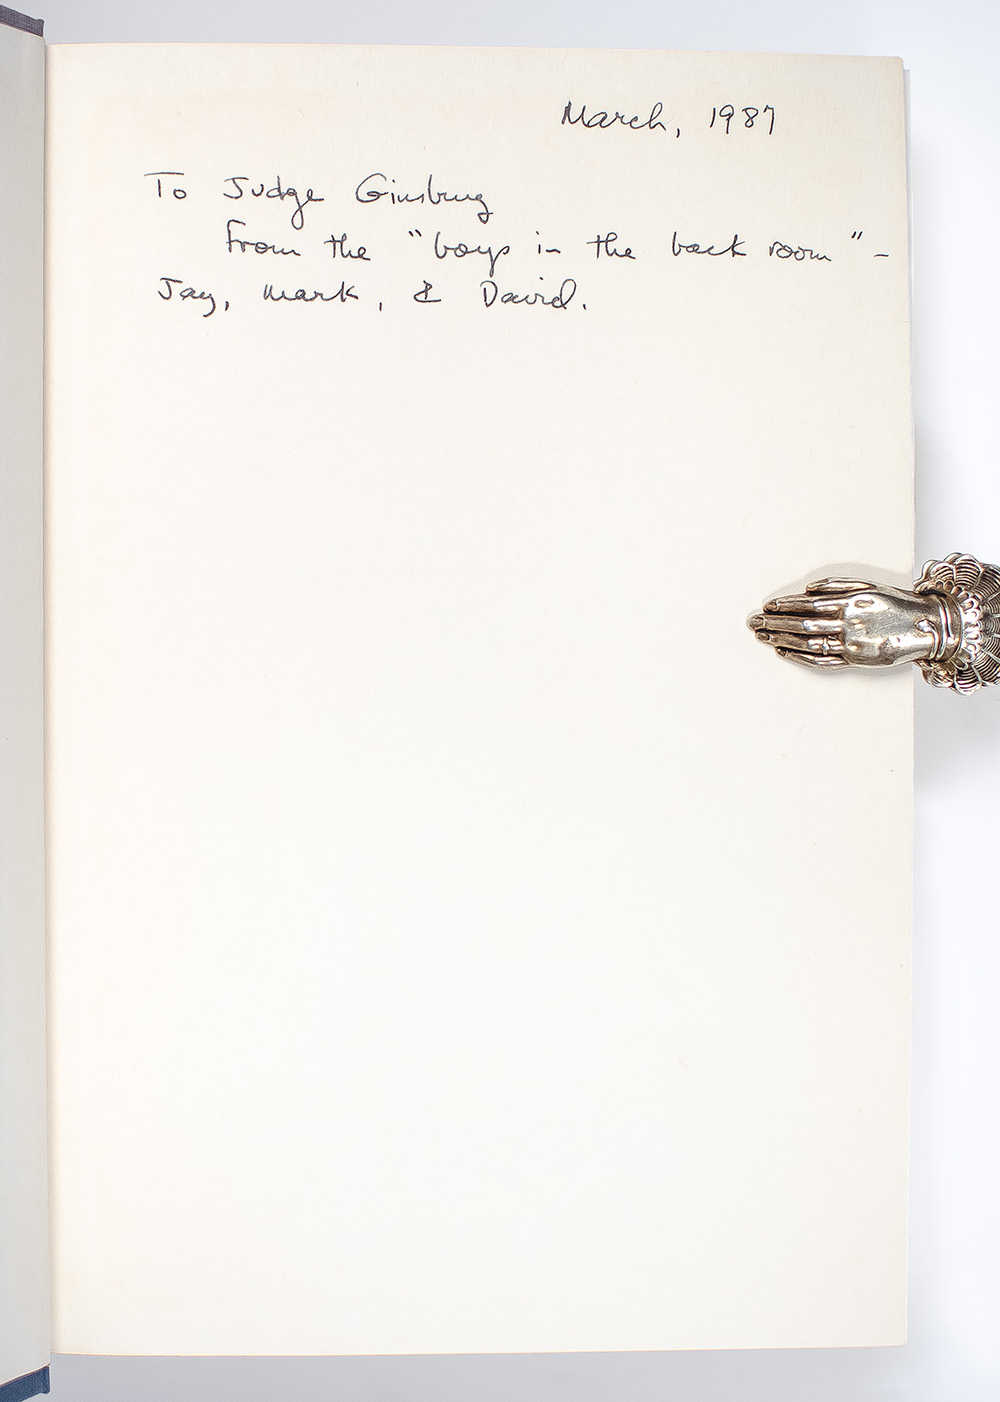 March, 1987
To Judge Ginsburg
From the "boys in the back room" -
Jay, Mark, & David.